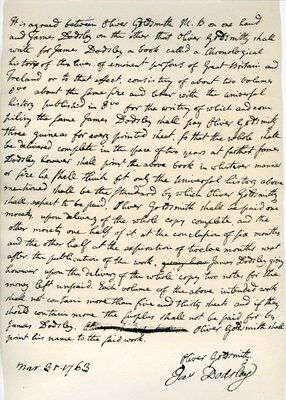 It is agreed between Oliver Goldsmith M.B on one hand
and James Dodsley on the other that Oliver Goldsmith shall
write for James Dodsley a book called a Chronological
history of the lives of eminent persons of Great Britain and
Ireland or to that effect, consisting of about two volumes
8vo about the same size and letter with the universal
history published in 8vo for the writing of which and com
piling the same James Dodsley shall pay Oliver Goldsmith
three guineas for every printed sheet, so that the whole shall
be delivered complete in the space of two years at farthest James
Dodsley however shall print the above book in whatever manner
or size he shall think fit only the Universal history above
mentioned shall be the standard by which Oliver Goldsmith
shall expect to be paid. Oliver Goldsmith shall be paid one
moiety upon delivery of the whole copy complete, and the
other moiety one half of it at the conclusion of six months
and the other half at the expiration of twelve months next
after the publication of the work, James Dodsley giving
however upon the delivery of the whole copy two notes for the
money left unpaid. Each volume of the above intended work
shall not contain more than five and thirty sheets and if they
should contain more the surplus shall not be paid for by
James Dodsley. Oliver Goldsmith shall
print his name to the said work.
Oliver Goldsmith.
Mar. 31. 1763
Dodsley